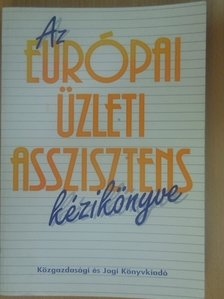 Az
EURÓPAI
ÜZLETI
ASSZISZTENS
kézikönyve
Közgazdasági és Jogi Könyvkiadó